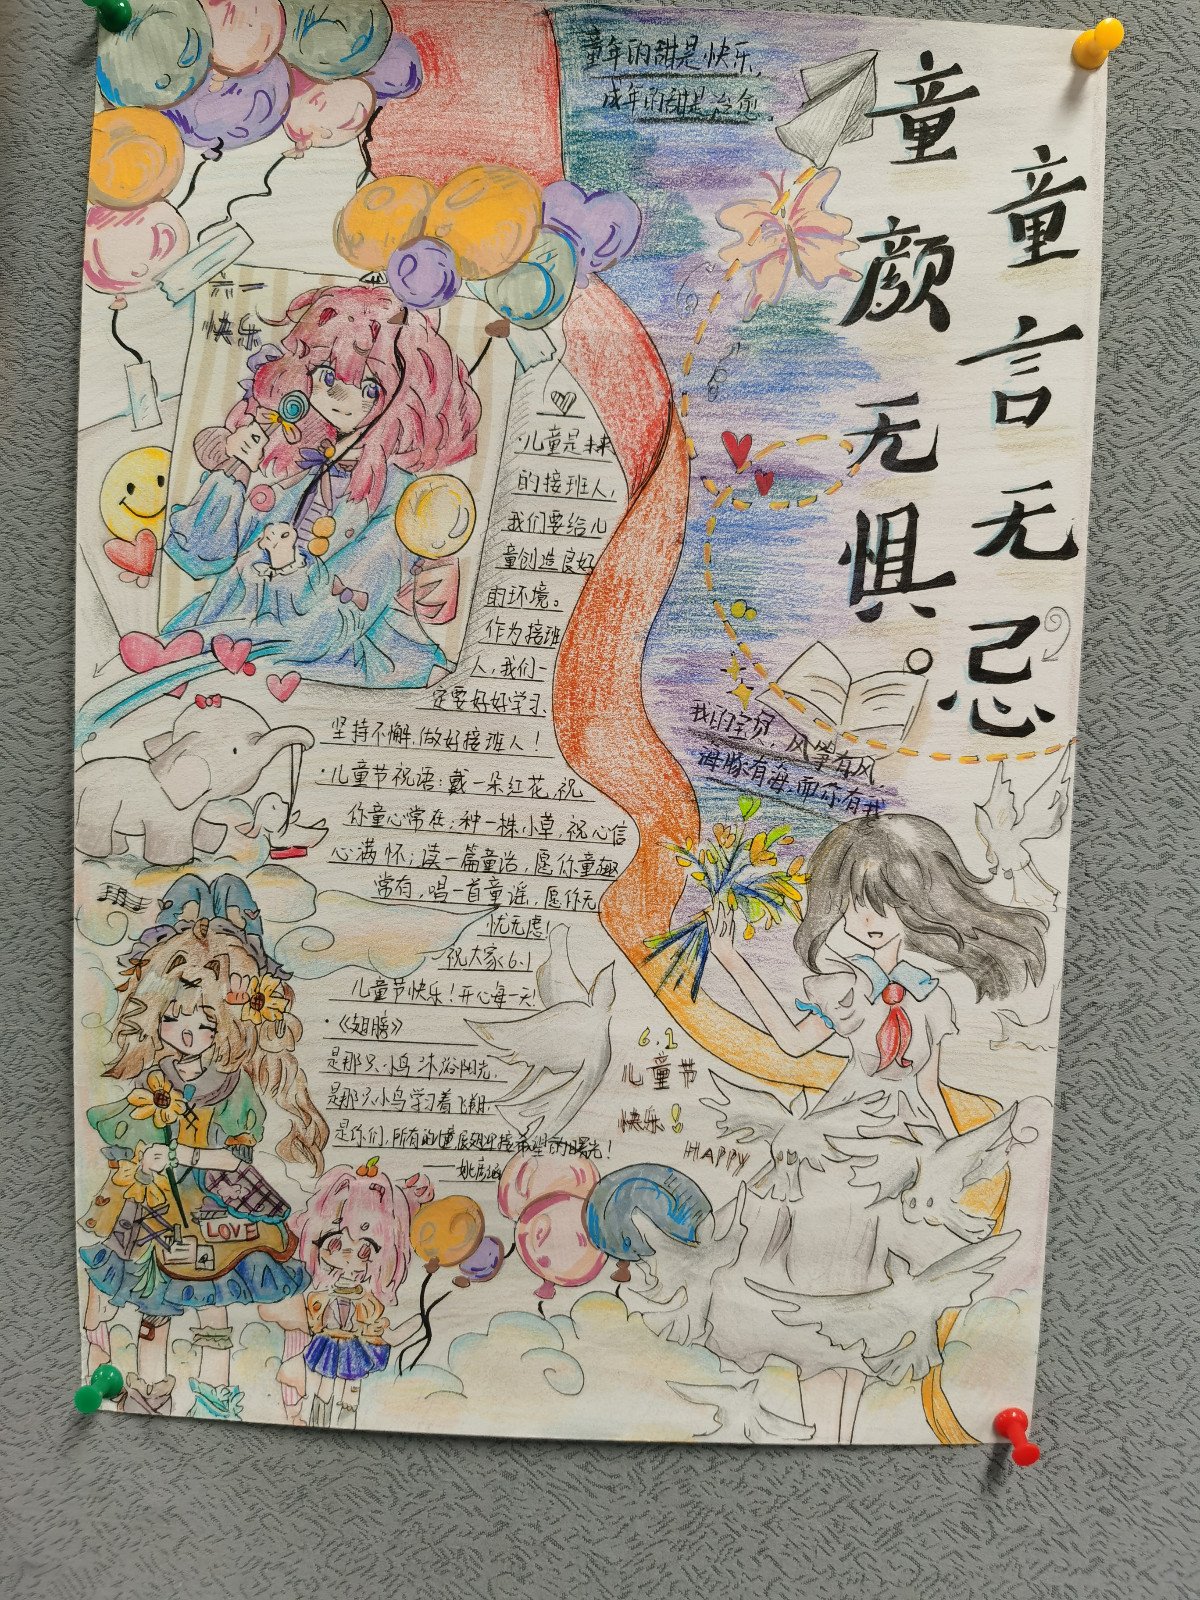 童言无忌
童颜无惧。
童年的甜是快乐,
成年的甜是治愈
六一
快乐
·儿童是未来
的接班人,
我们要给儿
童创造良好
的环境。
作为接班
人,我们一
定要好好学习、
坚持不懈,做好接班人!
·儿童节祝语:戴一朵红花,祝
你童心常在;种一株小草,祝心信
心满怀;读一篇童话,愿你童趣
常有,唱一首童谣,愿你无
忧无虑!
祝大家6.1
儿童节快乐!开心每一天!
·《翅膀》
是那只小鸟沐浴阳光,
是那只小鸟学习着飞翔,
是你们,所有的
希望的曙光!
我的宝贝,风筝有风,
海豚有海,而你有我
6.1
儿童节
快乐!
HAPPY
LOVE